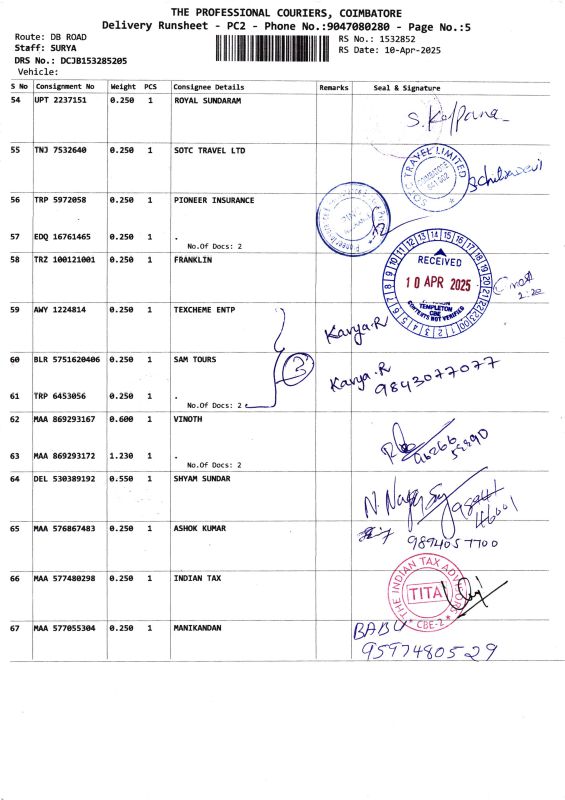 THE PROFESSIONAL COURIERS, COIMBATORE
Delivery Runsheet - PC2 - Phone No.:9047080280 - Page No.:5
Route: DB ROAD
RS No.: 1532852
Staff: SURYA
RS Date: 10-Apr-2025
DRS No.: DCJB153285205
Vehicle:
S No Consignment No Weight PCS Consignee Details Remarks Seal & Signature
54 UPT 2237151 0.250 1 ROYAL SUNDARAM
S. Kalpana
55 TNJ 7532640 0.250 1 SOTC TRAVEL LTD
SOTC TRAVEL LIMITED
COIMBATORE
641 002
56 TRP 5972058 0.250 1 PIONEER INSURANCE
57 EDQ 16761465 0.250 1 .
No.Of Docs: 2
58 TRZ 100121001 0.250 1 FRANKLIN
RECEIVED
10 APR 2025
TEMPLETON
CBE
CONTENTS NOT VERIFIED
59 AWY 1224814 0.250 1 TEXCHEME ENTP
Kavya.R
60 BLR 5751620406 0.250 1 SAM TOURS
3
Kavya.R
9843077077
61 TRP 6453056 0.250 1 .
No.Of Docs: 2
62 MAA 869293167 0.600 1 VINOTH
63 MAA 869293172 1.230 1 .
No.Of Docs: 2
64 DEL 530389192 0.550 1 SHYAM SUNDAR
65 MAA 576867483 0.250 1 ASHOK KUMAR
9894057700
66 MAA 577480298 0.250 1 INDIAN TAX
THE INDIAN TAX ADVISORS
TITA
CBE-2
67 MAA 577055304 0.250 1 MANIKANDAN
BABU
9597480529